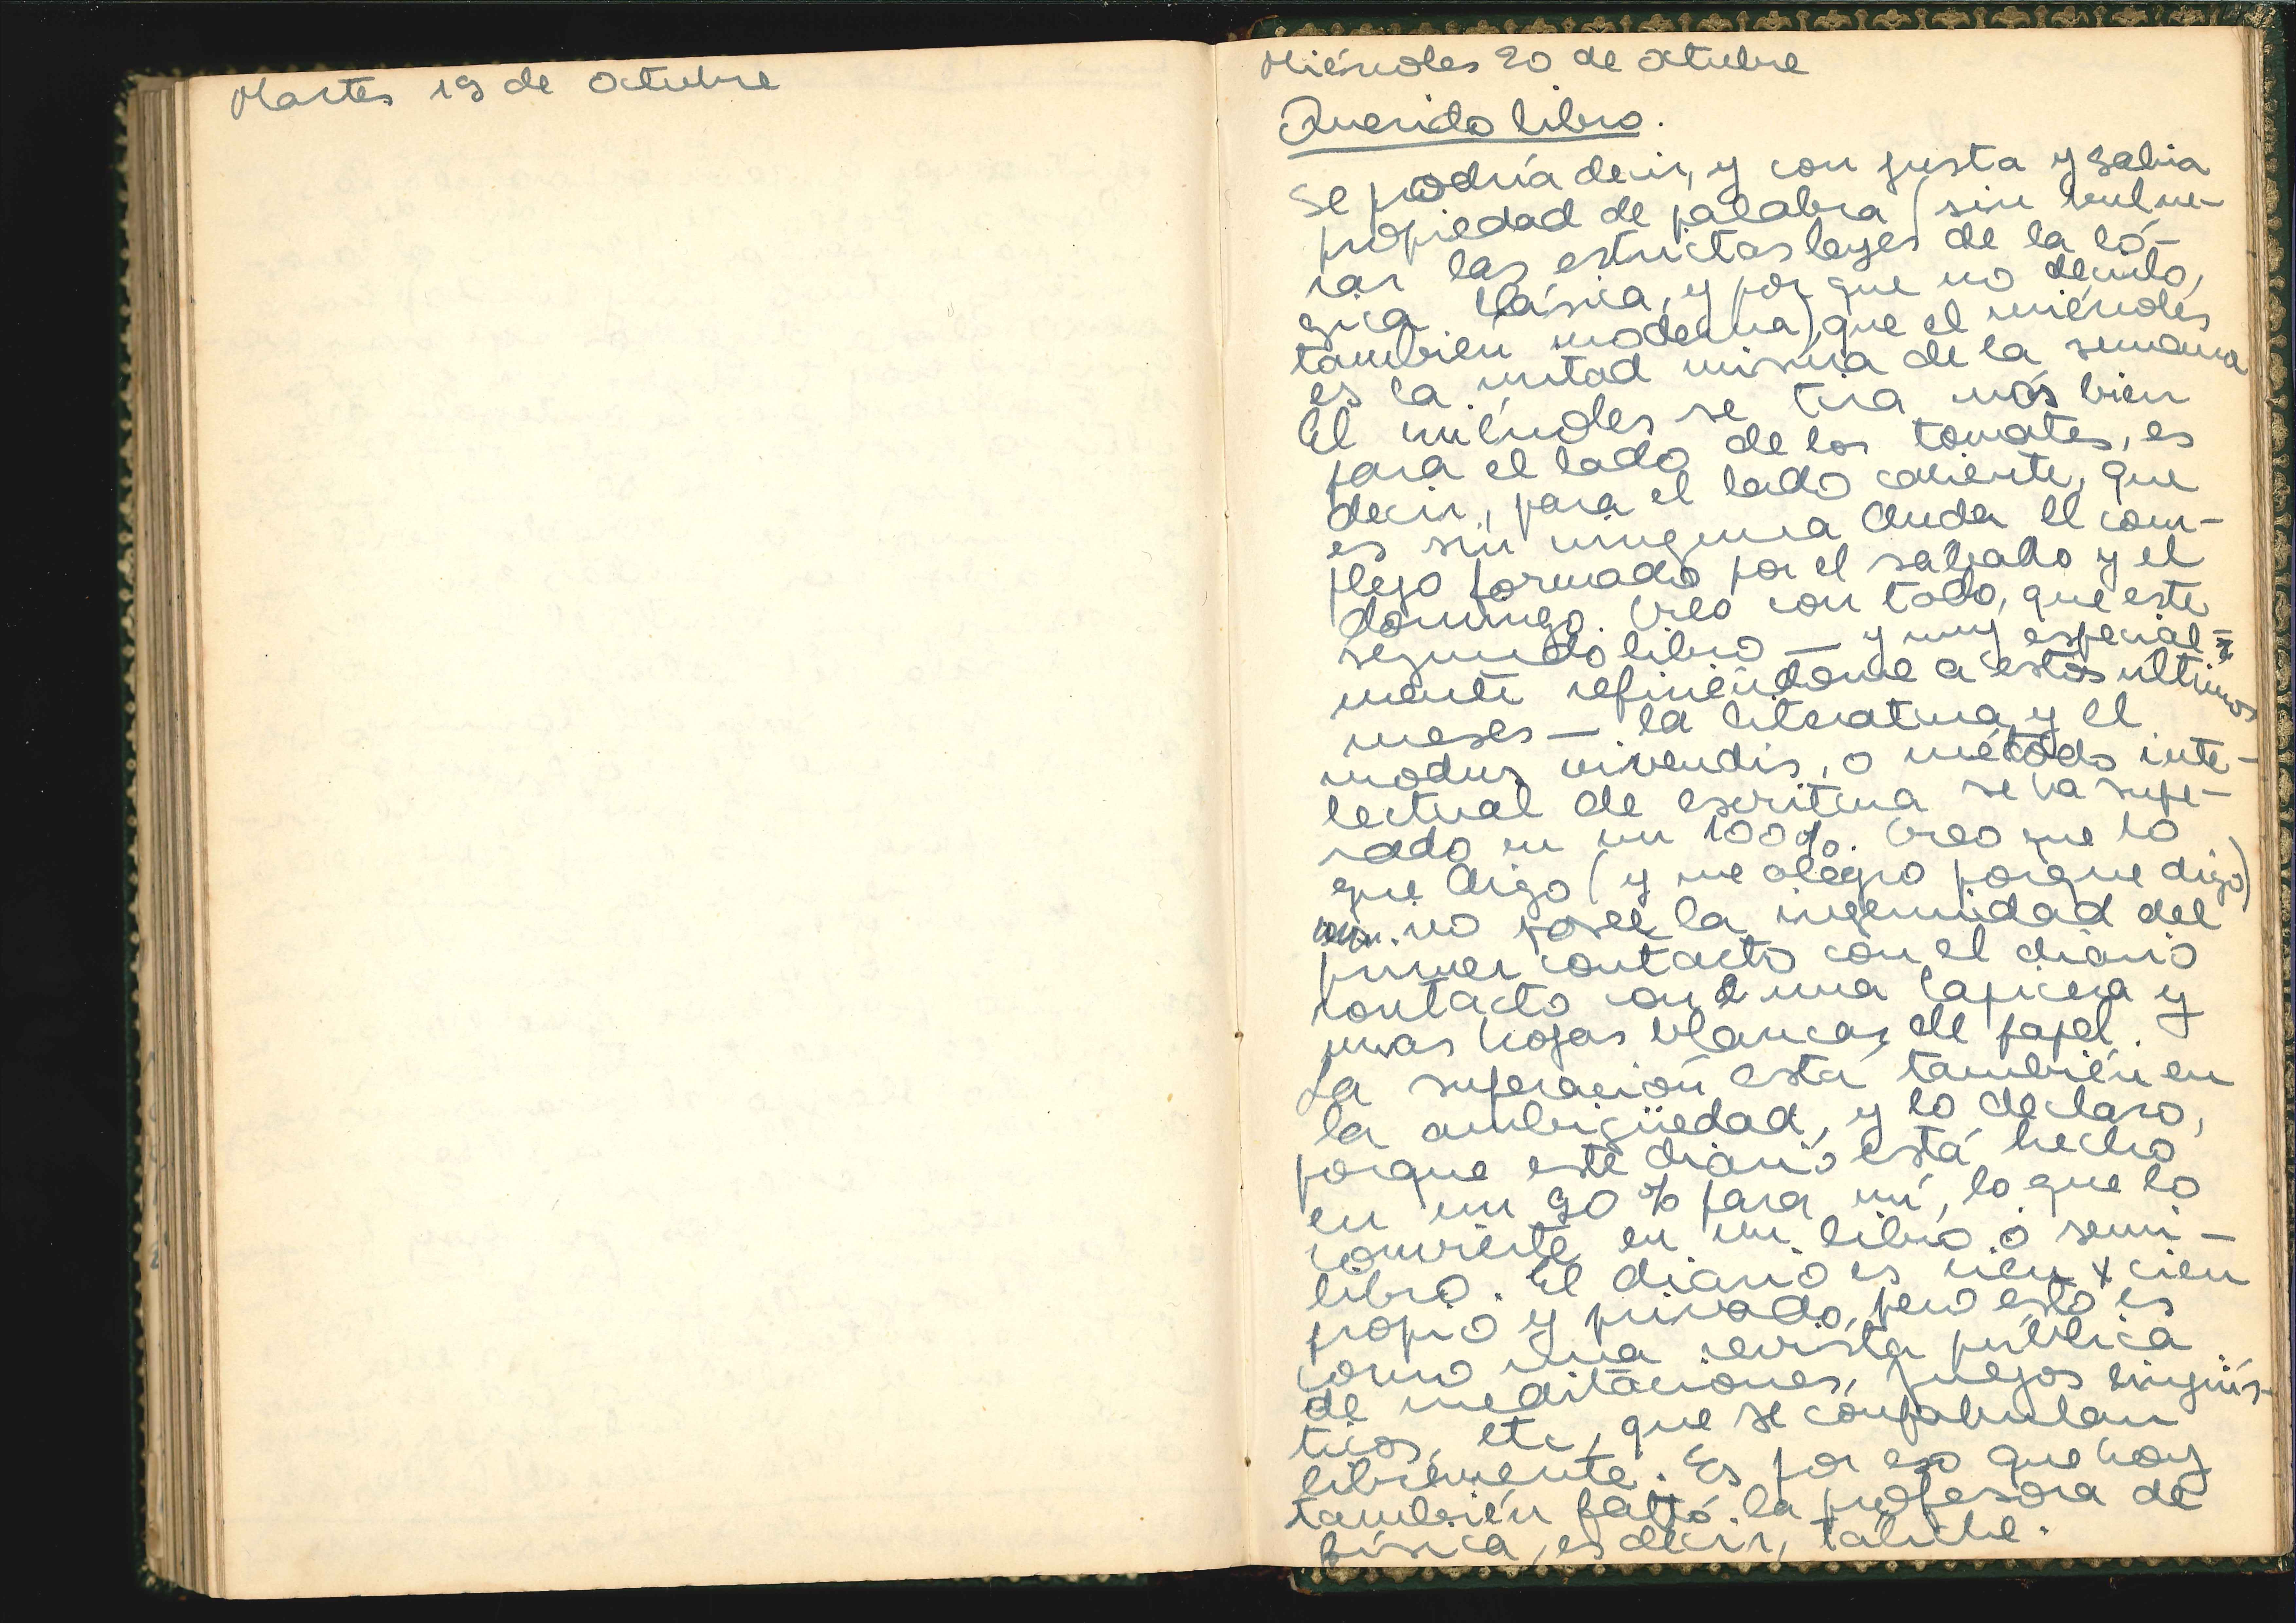 Martes 19 de octubre
Miércoles 20 de octubre
Querido libro.
Se podría decir, y con justa y sabia
propiedad de palabra (sin vulne-
rar las estrictas leyes de la ló-
gica clásica, y por que no decirlo,
también moderna) que el miércoles
es la mitad misma de la semana
El miércoles se tira más bien
para el lado de los tomates, es
decir, para el lado caliente, que
es sin ninguna duda el com-
plejo formado por el sabado y el
domingo. Creo con todo, que este
segundo libro — y muy especial-
mente refiriéndome a estos ultimos
meses — la literatura y el
modus vivendis, o método inte-
lectual de escritura se ha supe-
rado en un 100%. Creo que lo
que digo (y me alegro porque digo)
no posee la ingenuidad del
primer contacto con el diario
contacto con una lapicera y
unas hojas blancas de papel.
La superación está también en
la ambigüedad, y lo declaro,
porque este diario está hecho
en un 90% para mí, lo que lo
convierte en un libro o semi-
libro. El diario es cien x cien
propio y privado, pero esto es
como una revista pública
de meditaciones, juegos lingüís-
ticos, etc, que se confabulan
libremente. Es por eso que hoy
también faltó la profesora de
física, es decir, taliche.